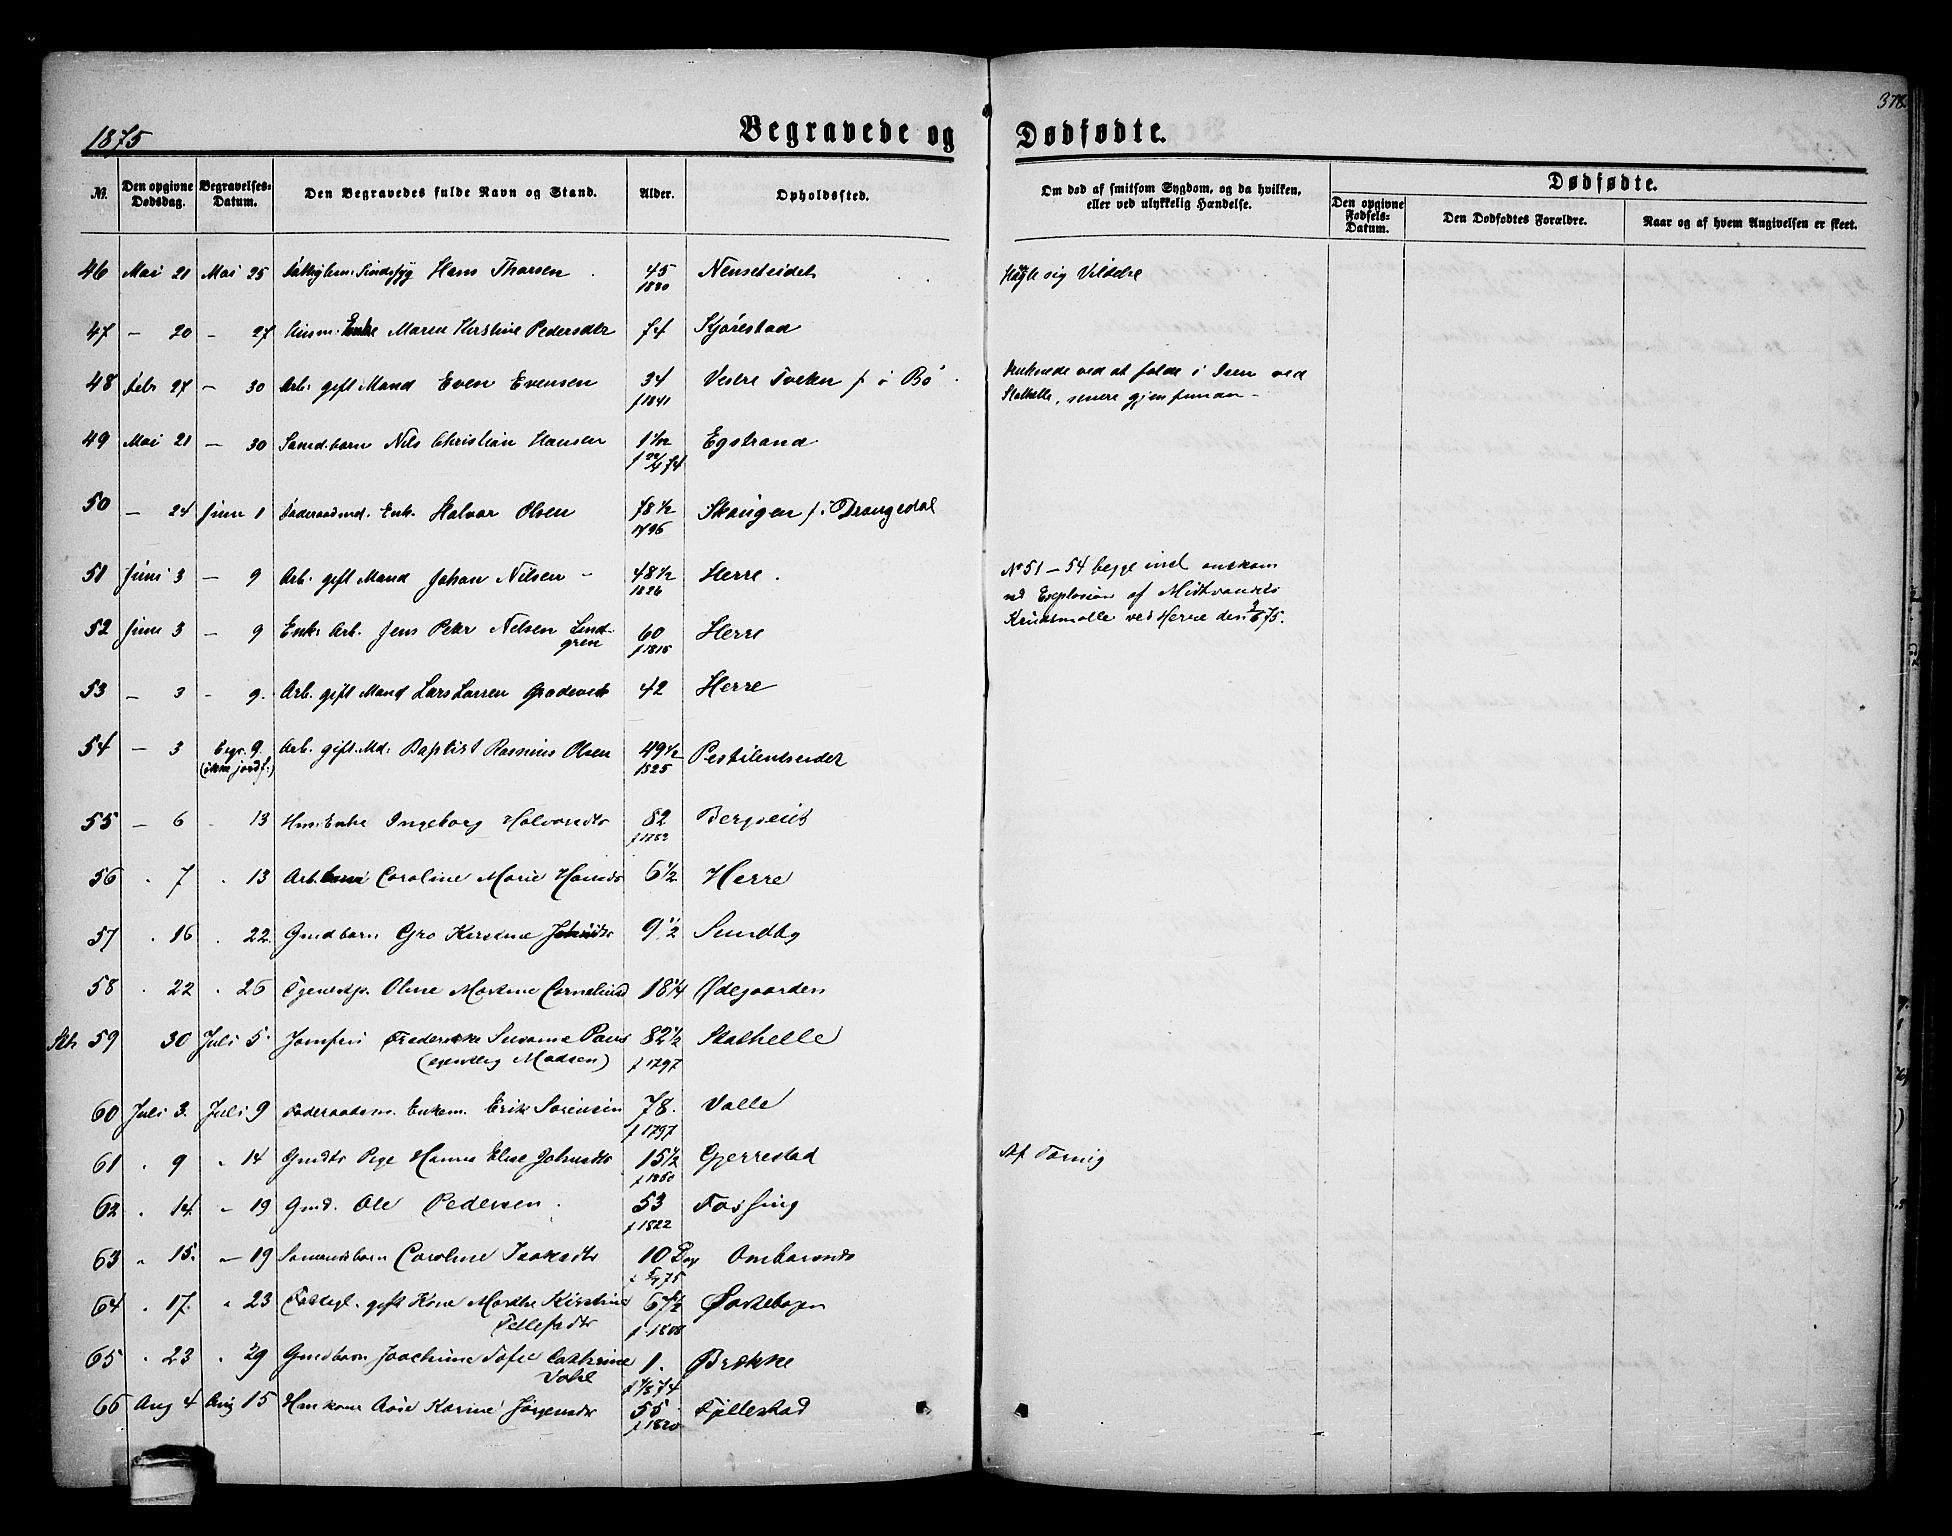 378.
1875
Begravede og Dødfødte.
№.
Den opgivne Dødsdag.
Begravelses-Datum.
Den Begravedes fulde Navn og Stand.
Alder.
Opholdssted.
Om død af smitsom Sygdom, og da hvilken, eller ved ulykkelig Hændelse.
Dødfødte.
Den opgivne Fødsels-Datum.
Den Dødfødtes Forældre.
Naar og af hvem Angivelsen er skeet.
46 Mai 21 Mai 25 Sindssyg Hans Thorsen 45 1830 Nenseteidet sig
47 – 20 – 27 Husm. Enke Maren Kirstine Pedersdtr 74 Kjørestad
48 Febr 27 – 30 Arb. gift Mand Even Evensen 34 f 1841 Vestre Tveten f i Bø
Druknede ved at falde i Isen ved
Stathelle, senere gjenfunden –
49 Mai 21 – 30 Nils Christian Hansen 1 1/12 Egstrand
50 – 24 Juni 1 Enk. Halvor Olsen 78 1/2 1796 Skougen f i Drangedal
51 Juni 3 – 9 Arb. gift Mand Johan Nilsen – 48 1/2 1826 Herre.
No 51 – 54 begge incl omkom
ved Explosion af Midtvandets
Krudtmølle ved Herre den 3/6 75.
52 Juni 3 – 9 Enk. Arb. Jens Peter Nilsen Lind-
gren 60 f 1815 Herre
53 – 3 – 9. Arb. gift Mand Lars Larsen 42 Herre
54 – 3 begr. 9. (ikke jordf.) Arb. gift. Md. Baptist Rasmus Olsen 49 1/2 1825 Pestilentseidet
55 – 6 – 13 Enke Ingeborg Halvorsdtr 82 Bergseid
56 " 7 " 13 Arb. barn Caroline Marie Hansdtr 6 1/2 Herre
57 " 16 " 22. Gmdbarn Gro Kirstine 9 1/2 Sundby
58 " 22 " 26 Tjenestp. Oline Martine Corneliusd 18 1/4 Ødegaarden
Sth 59 30 Juli 5. Jomfru Frederikke Susanne Paus
(egentlig Madsen) 82 1/2 f 1797 Stathelle
60 Juli 3. Juli 9 Føderaadsm. Enkem. Erik Sørensen 78. f 1797 Valle
61 " 9 " 14 Gmdts Pige Hanna Elise Johnsdtr 15 1/2 f 1860 Gjerrestad Af Tæring
62 " 14. – 19 Gmd. Ole Pedersen 53 f 1822 Fossing
63 " 15. – 19 Sømandsbarn Caroline Isaksdtr 10 Dg f 5/7 75 Omborsnes
64 " 17. " 23 gift Kone Marthe Kirstine
Tellefsdtr 67 1/2 f. 1808
65 " 23 " 29 Gmdbarn Joachime Tofie Cathrine
Dahl 1. f 7/8 74 Brække
66 Aug 4 Aug 15 Hmkone Aase Karine Jørgensdtr 55 f 1820 Fjellestad